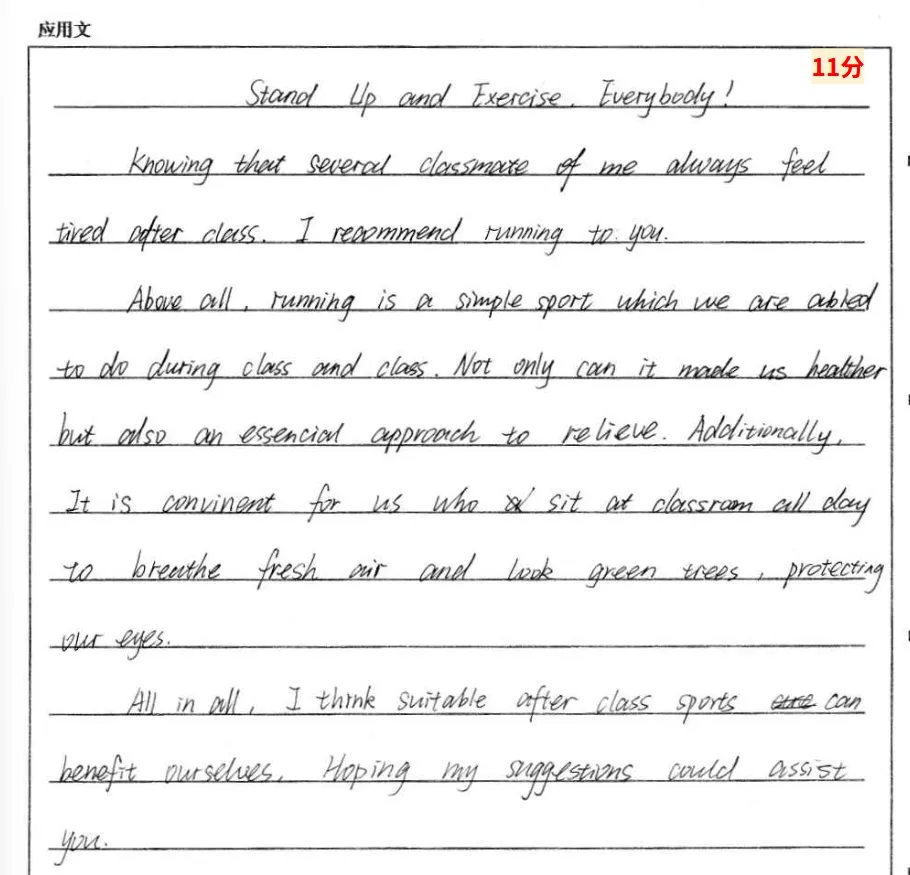 应用文
11分
Stand Up and Exercise. Everybody!
Knowing that several classmate of me always feel
tired after class. I recommend running to you.
Above all, running is a simple sport which we are abled
to do during class and class. Not only can it made us healther
but also an essencial approach to relieve. Additionally,
It is convinent for us who sit at classroom all day
to breathe fresh air and look green trees, protecting
our eyes.
All in all, I think suitable after class sports can
benefit ourselves. Hoping my suggestions could assist
you.